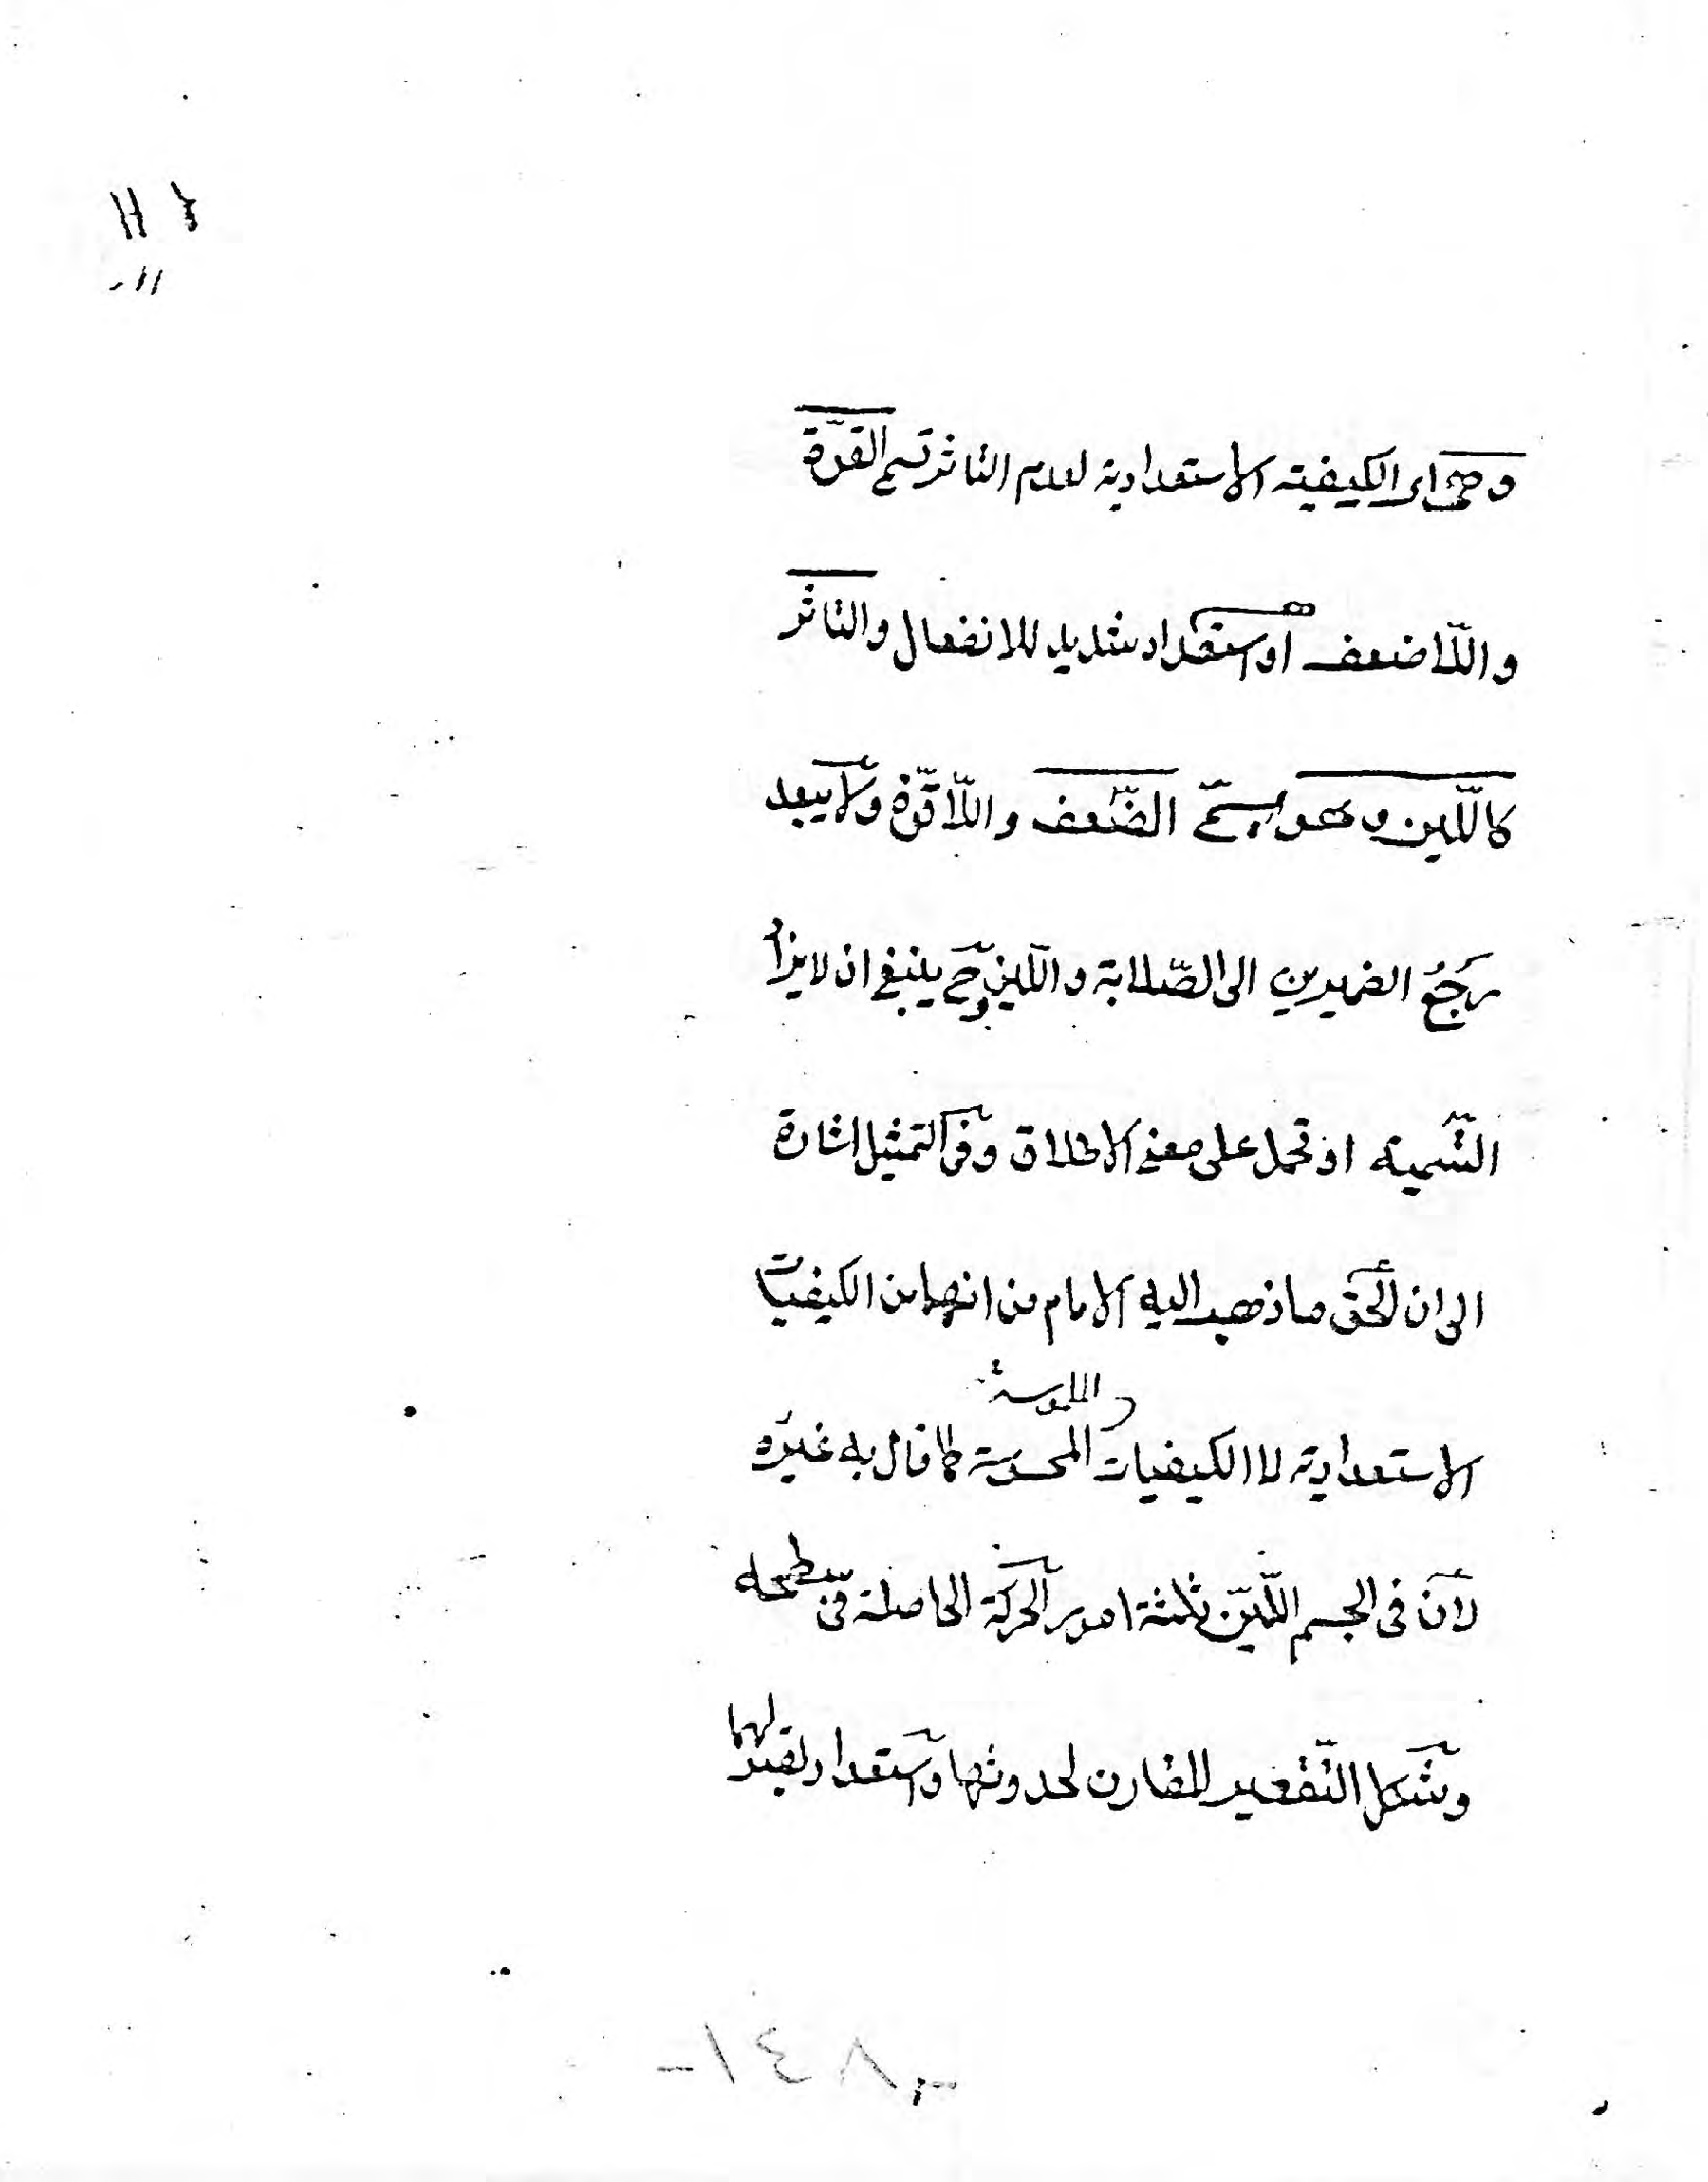 وهى اى الكيفية الاستعدادية لعدم التاثر تسمى القوّة
واللّاضعف او استعداد شديد للانفعال والتاثر
كاللّين وهو يسمّى الضّعف واللّاقوّة ولا يبعد
رجعُ الضميرين الى الصّلابة واللّين وح ينبغى ان لا يراد
التّسمية او تحمل على معنى الاطلاق وفى التمثيل اشارة
الى ان الحق ما ذهب اليه الامام من انهما من الكيفيات
والملموسة
الاستعدادية لا الكيفيات المحسوسة كما قال به غيره
لان فى الجسم اللّيّن ثلثة امور الحركة الحاصلة فى سطحه
وشكل التّقعير المقارن لحدوثها واستعداد لقبولهما
-٨٤١-